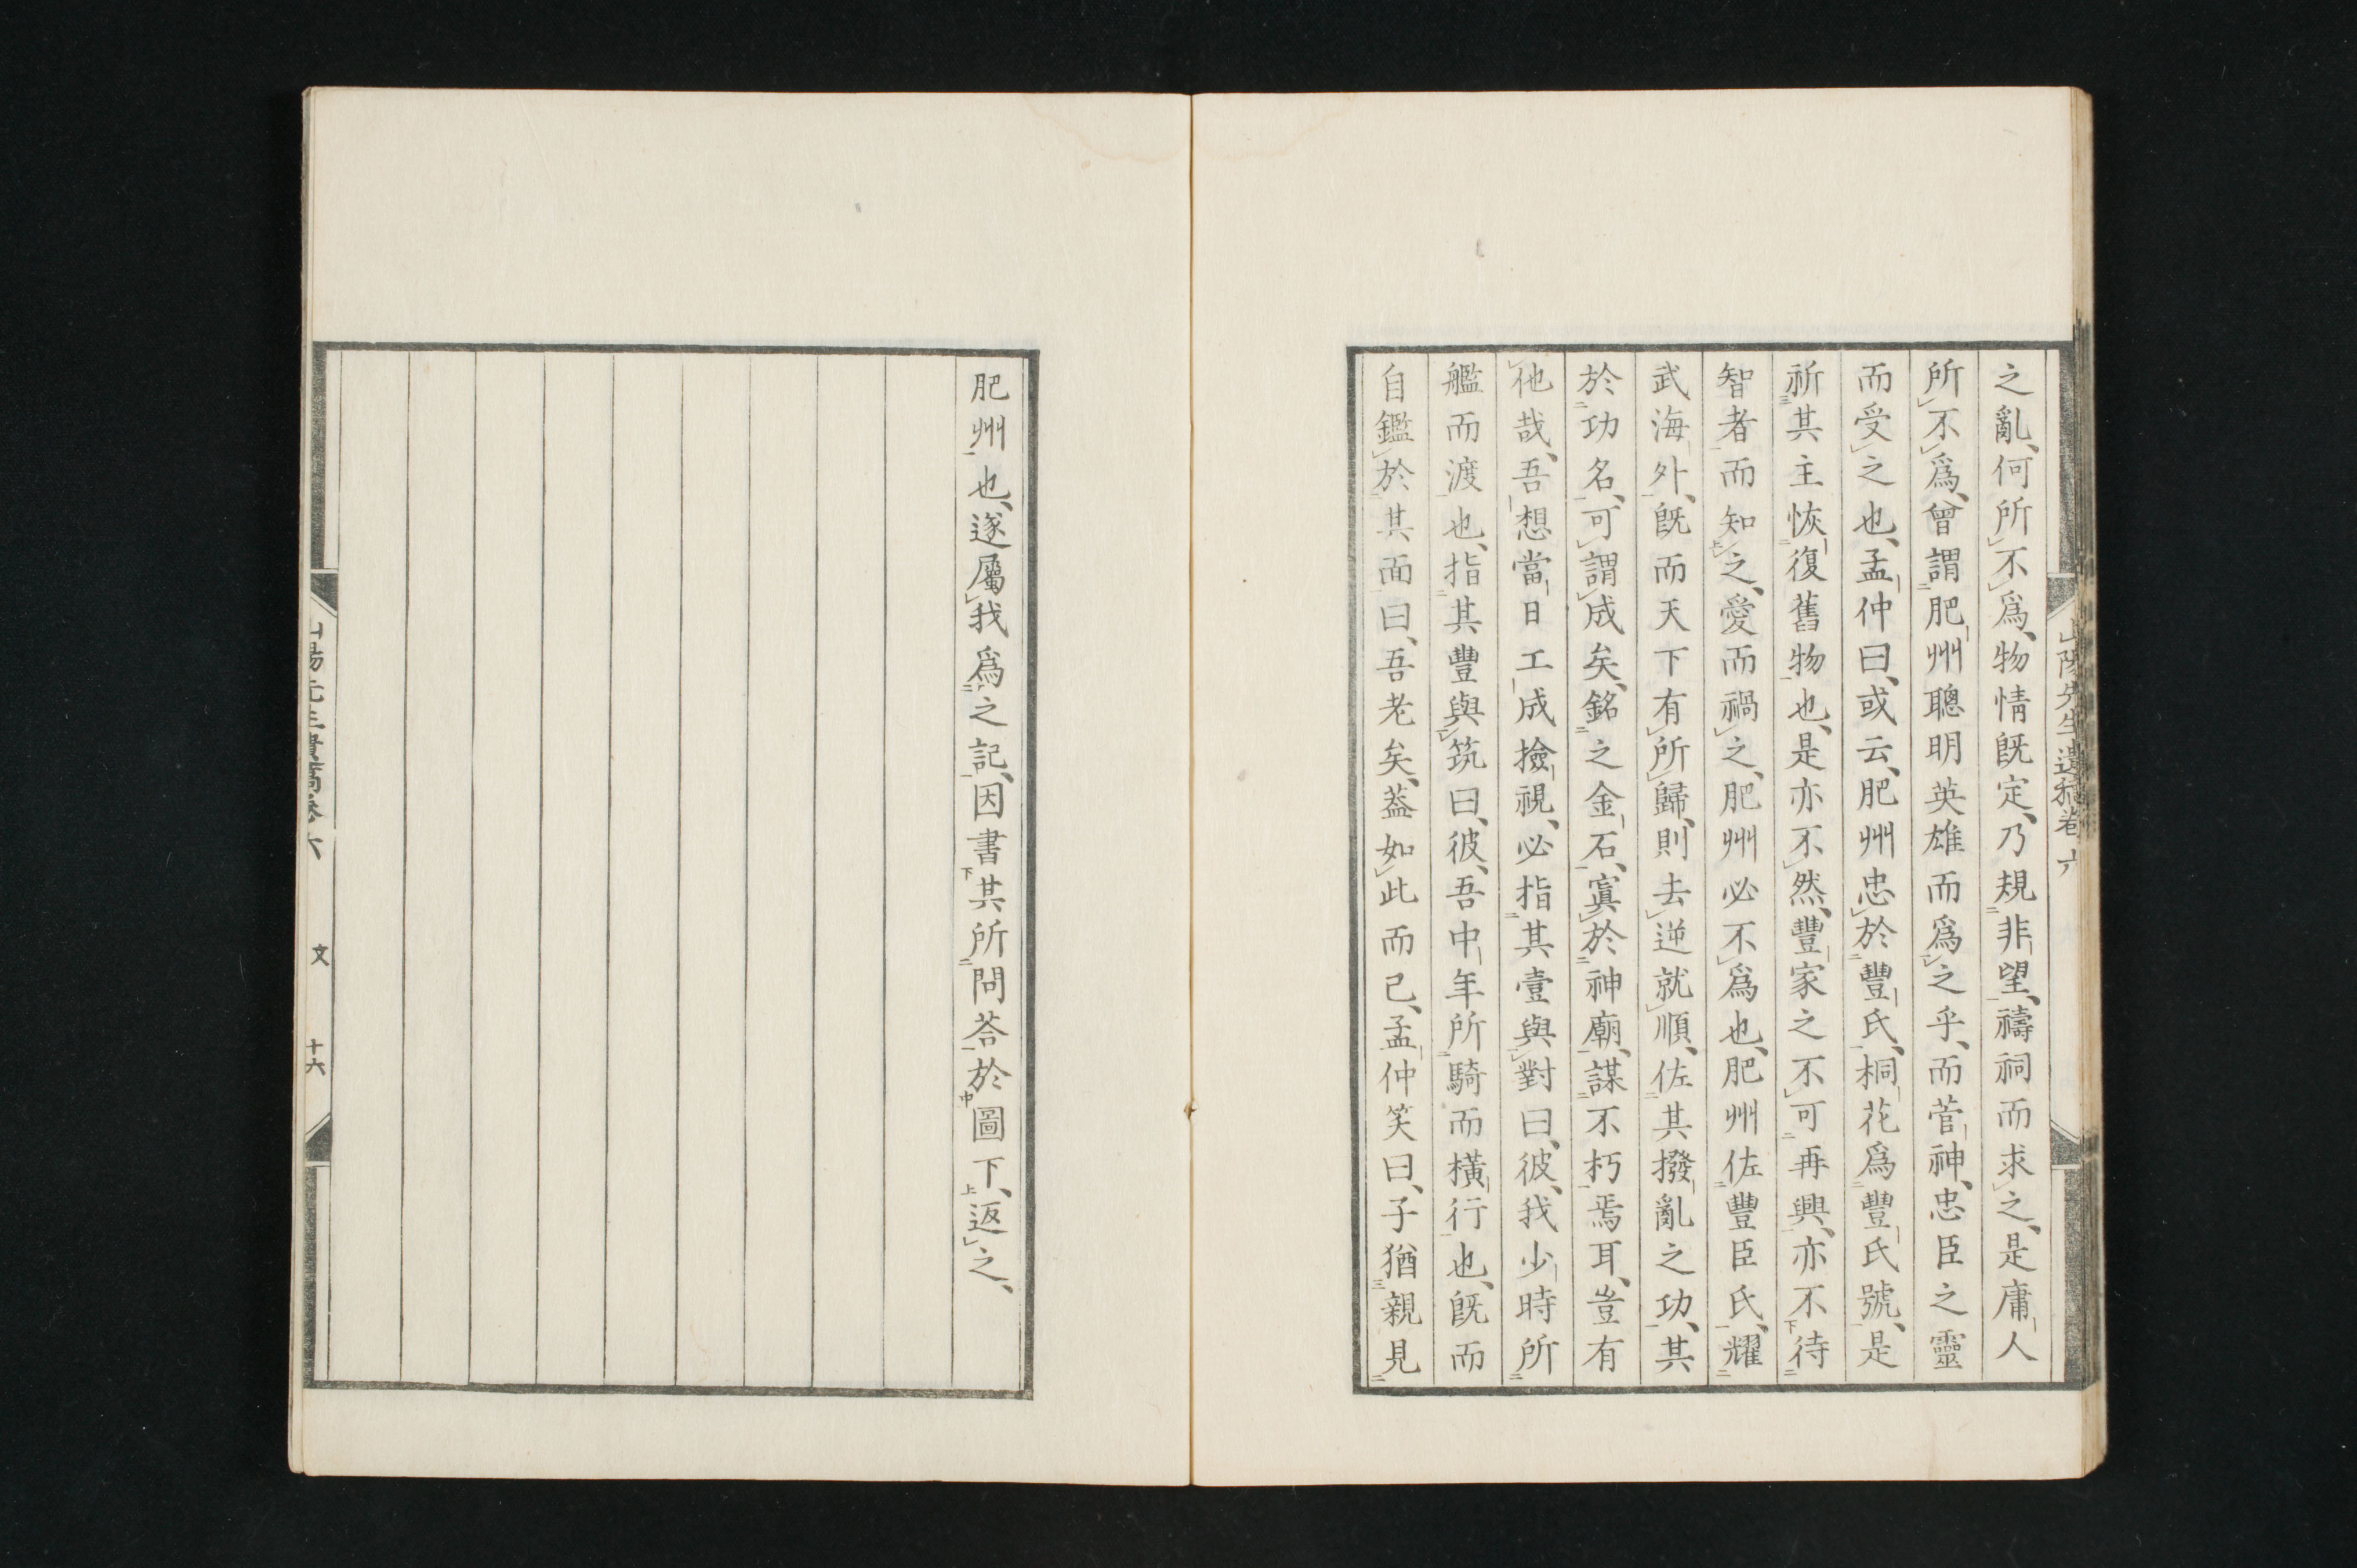 之亂、何所不爲、物情既定、乃規非望、禱祠而求之、是庸人
所不爲、曾謂肥州聰明英雄而爲之乎、而菅神、忠臣之靈
而受之也、孟仲曰、或云、肥州忠於豐氏、桐花爲豐氏號、是
祈其主恢復舊物也、是亦不然、豐家之不可再興、亦不待
智者而知之、愛而禍之、肥州必不爲也、肥州佐豐臣氏、耀
武海外、既而天下有所歸、則去逆就順、佐其撥亂之功、其
於功名、可謂成矣、銘之金石、寘於神廟、謀不朽焉耳、豈有
他哉、吾想當日工成撿視、必指其壹與對曰、彼、我少時所
艦而渡也、指其豐與筑曰、彼、吾中年所騎而橫行也、既而
自鑑於其面曰、吾老矣、葢如此而已、孟仲笑曰、子猶親見
肥州也、遂屬我爲之記、因書其所問荅於圖下、返之、
山陽先生遺稿卷六
文
十六